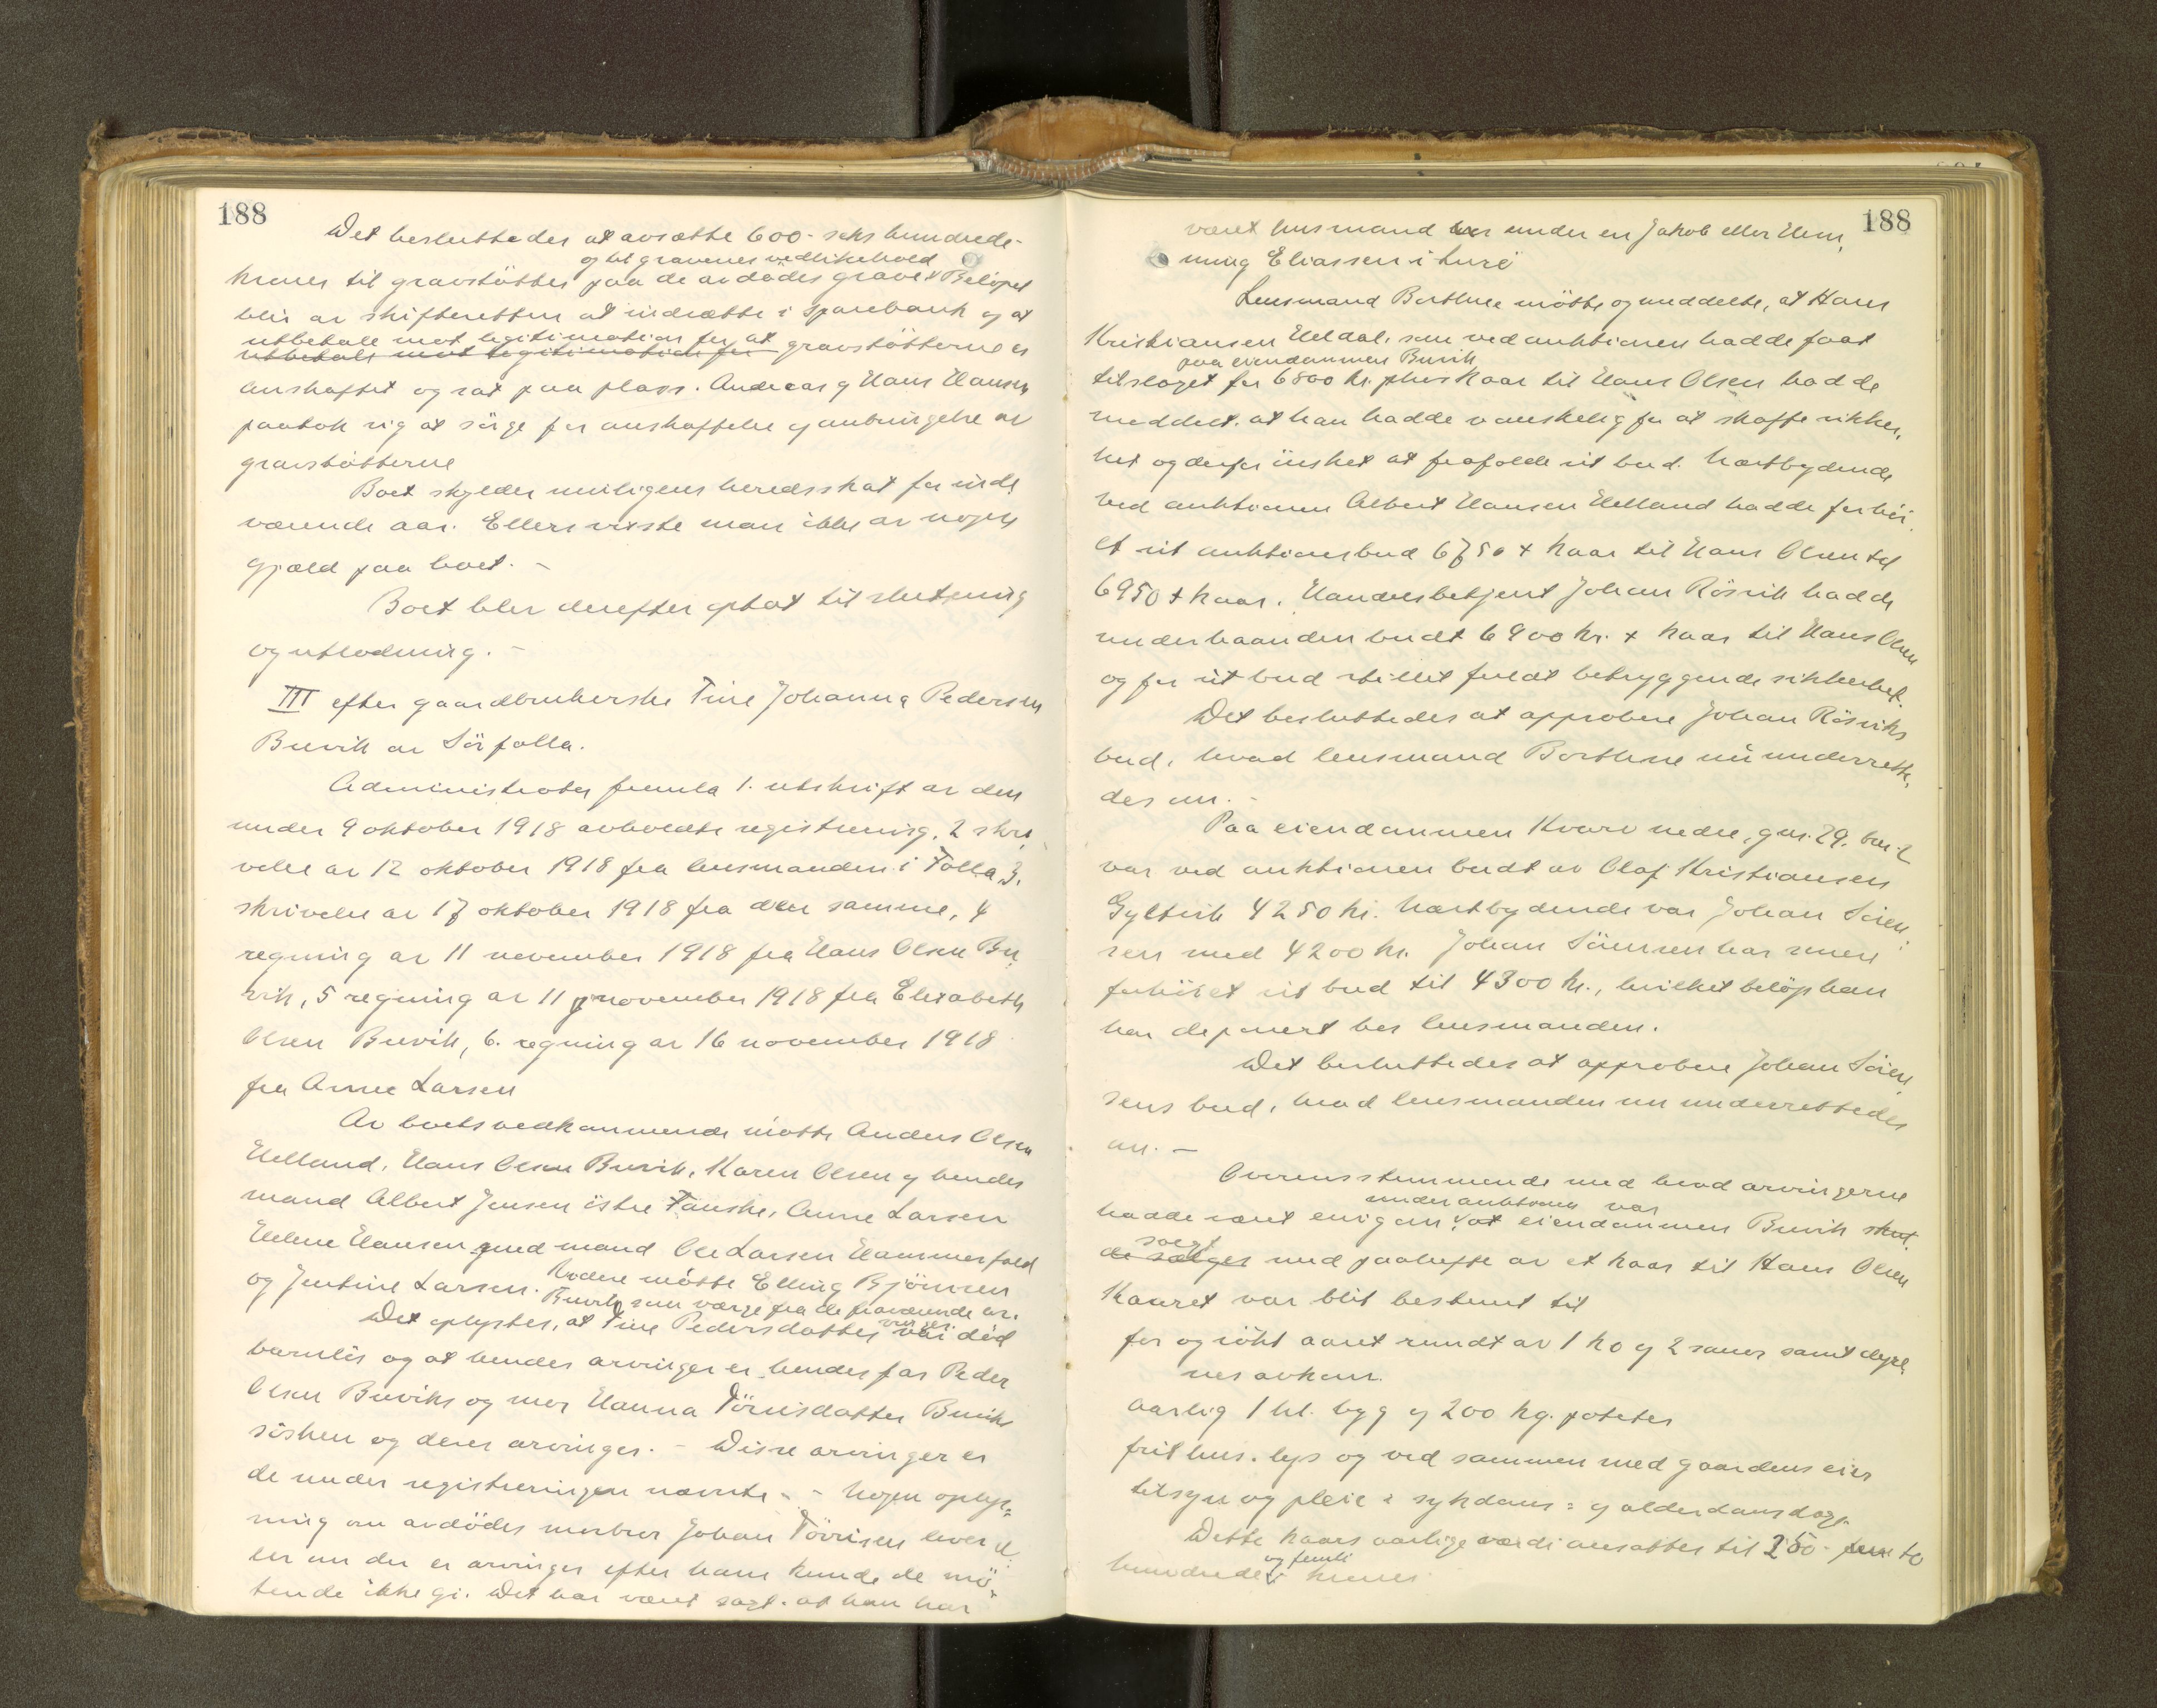 188
Det besluttedes at avsætte 600 - seks hundrede -
og til gravenes vedlikehold
kroner til gravstötter paa de avdödes grave. Belöpet
blir av skifteretten at indsætte i sparebank og at
utbetale mot legitimation for at gravstötterne er
utbetale mot legitimation for
anskaffet og sat paa plass. Andreas og Hans Hansen
paatok sig at sörge for anskaffelse og anbringelse av
gravstötterne
Boet skylder muligens heredsskat for inde-
værende aar. Ellers visste man ikke av nogen
gjæld paa boet. -
Boet blev derefter optat til slutning
og utlodning. -
III efter gaardbrukerske Tine Johanna Pedersen
Buvik av Sörfolla.
Administrator fremla 1. utskrift av den
under 9 oktober 1918 avholdte registrering, 2 skri-
velse av 12 oktober 1918 fra lensmanden i Folla, 3.
skrivelse av 17 oktober 1918 fra den samme, 4
regning av 11 november 1918 fra Hans Olsen Bu-
vik, 5 regning av 11 november 1918 fra Elisabeth
Olsen Buvik, 6. regning av 16 november 1918
fra Anne Larsen
Av boets vedkommende mötte Anders Olsen
Helland, Hans Olsen Buvik, Karen Olsen og hendes
mand Albert Jensen östre Fauske, Anne Larsen
Helene Hansen med mand Ole Larsen Hammerfald
og Jentine Larsen. Videre mötte Elling Björnsen
Buvik som værge for de fraværende ar-
vinger.
Det oplystes, at Tine Pedersdatter var död
barnlös og at hendes arvinger er hendes far Peder
Olsen Buviks og mor Hanna Törrisdatter Buviks
sösken og deres arvinger. - Disse arvinger er
de under registreringen nævnte. - Nogen oplys-
ning om avdödes morbror Johan Törrisen lever el-
ler om der er arvinger efter ham kunde de mö-
tende ikke gi. Det har været sagt, at han har
188
været husmand under en Jakob eller Hem-
ming Eliassen i Luröi
Lensmand Borthne mötte og meddelte, at Hans
Kristiansen Heldal, som ved auktionen hadde faat
paa eiendommen Buvik
tilslaget for 6800 kr. plus kaar til Hans Olsen hadde
meddelt, at han hadde vanskelig for at skaffe sikker-
het og derfor önsket at frafalde sit bud. Næstbydende
ved auktionen Albert Hansen Helland hadde forhöi-
et sit auktionsbud 6750 + kaar til Hans Olsen til
6950 + kaar. Handelsbetjent Johan Rösvik hadde
underhaanden budt 6900 kr. + kaar til Hans Olsen
og for sit bud stillet fuldt betryggende sikkerhet.
Det besluttedes at approbere Johan Rösviks
bud, hvad lensmand Borthne nu underrette-
des om. -
Paa eiendommen Kvarv nedre, gnr. 29, bnr. 2
var ved auktionen budt av Olaf Kristiansen
Gyltvik 4250 kr. Næstbydende var Johan Sören-
sen med 4200 kr. Johan Sörensen har senere
forhöiet sit bud til 4300 kr., hvilket belöp han
har deponert hos lensmanden.
Det besluttedes at approbere Johan Sören-
sens bud, hvad lensmanden nu underrettedes
om. -
Overensstemmende med hvad arvingerne
under auktionen var
hadde været enig om, at eiendommen Buvik skul-
solgt
de sælges med paahefte av et kaar til Hans Olsen
Kaaret var blit bestemt til
for og rökt aaret rundt av 1 ko og 2 sauer samt dyre-
nes avkom.
aarlig 1 hl. byg og 200 kg. poteter
frit hus, lys og ved sammen med gaardens eier
tilsyn og pleie i sykdoms- og alderdomsdage.
Dette kaars aarlige værdi ansattes til 250 - to
og femti
hundrede kroner